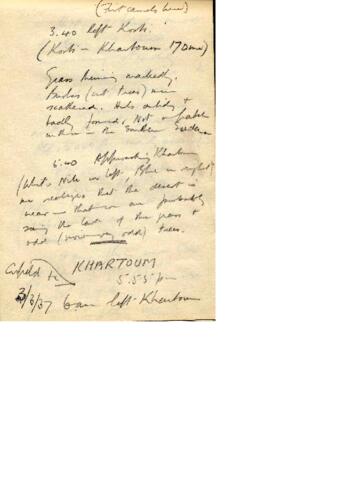 (First camels here)
3.40 left Kosti.
(Kosti - Khartoum 170 m)
Grass thinning markedly.
Bushes (not trees) more
scattered. Huts untidy &
badly formed, Not a patch
on those in the Southern Sudan
5.40 Approaching Khartoum
(White Nile on left, Blue on right)
one realizes that the desert is
near - that we are probably
seeing the last of the grass &
odd (now very odd) trees.
KHARTOUM
5.55 pm
3/3/37 6 am left Khartoum